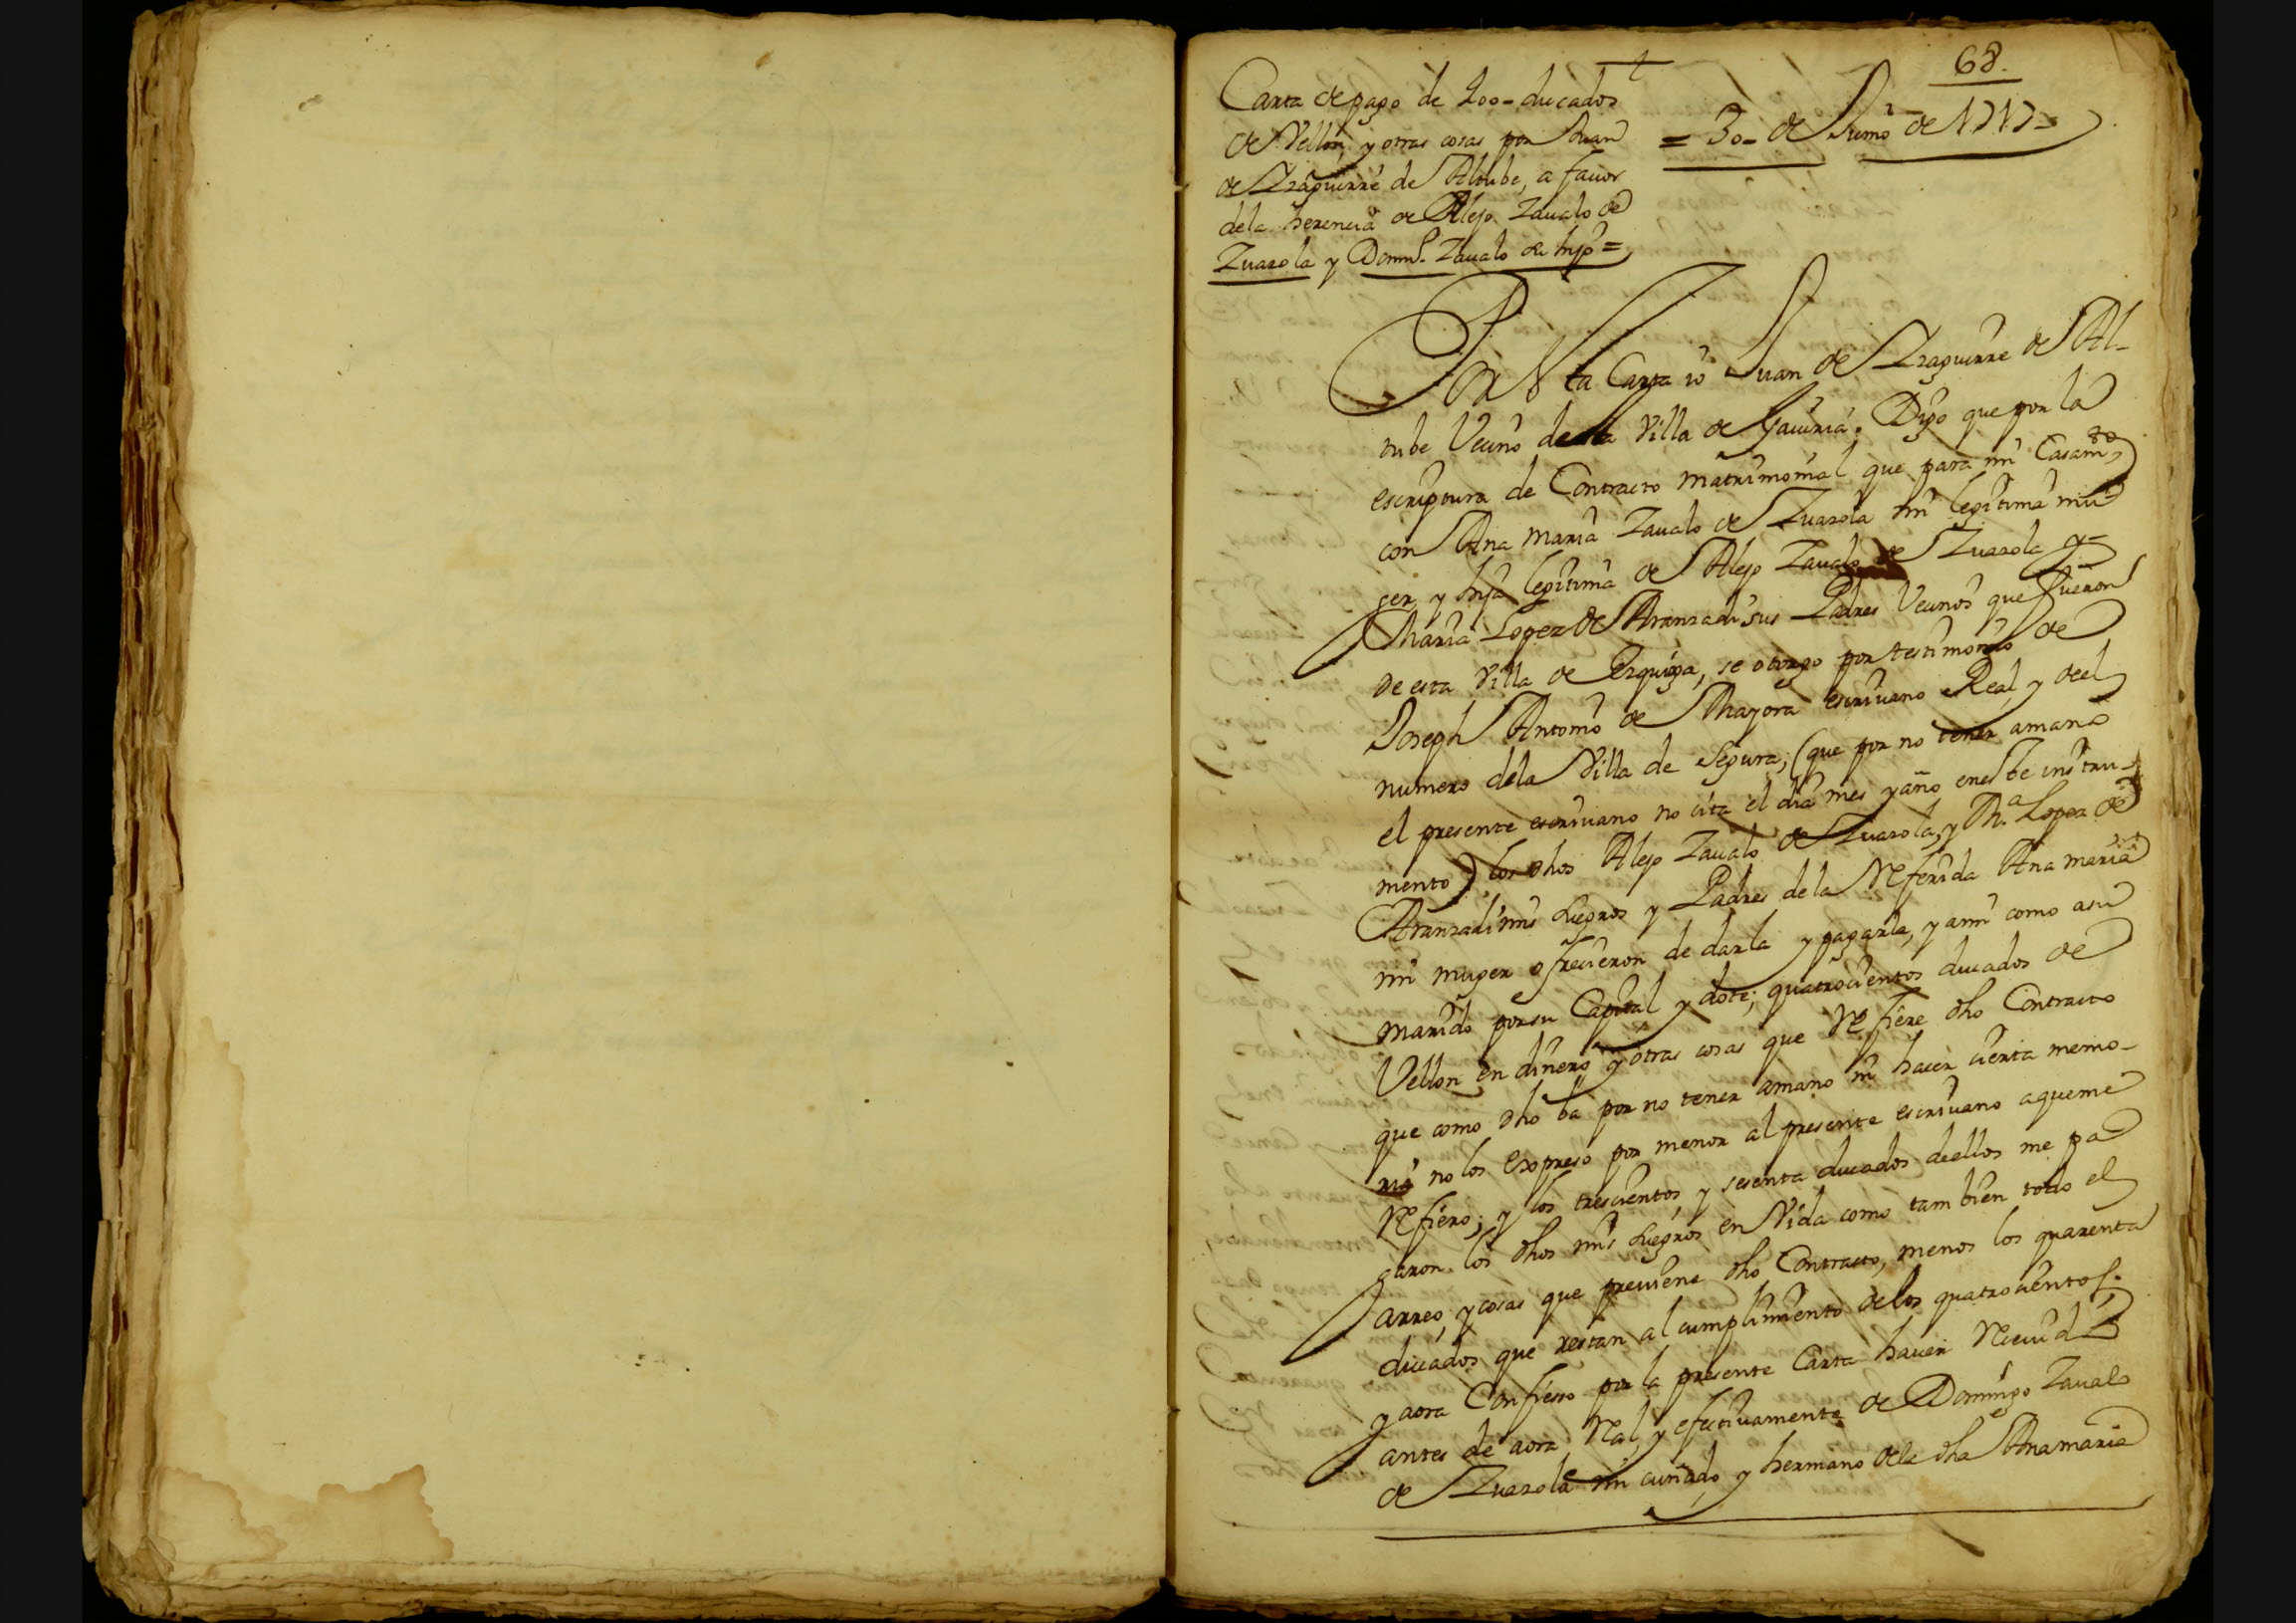 68.
Carta de pago de 400 - ducados
de Vellon, y otras cosas, por Juan
de Yzaguirre de Altube, a fauor
dela herencia de Alejo Zaualo de
Zuazola y Domin.º Zaualo su hijo =
= 30 - de Junio de 1717 =
Por Esta Carta io Juan de Yzaguirre de Al-
tube Vecino de la Villa de Gauiria. Digo que por la
escriptura de Contracto matrimonial que para mi Casam.to
con Ana maria Zaualo de Zuazola mi legitima mu
ger y hija legitima de Alejo Zaualo de Zuazola y
Maria Lopez de Aranzadi sus Padres Vecinos que fueron
de esta Villa de Ezquioga, se otorgo por testimonio de
Joseph Antonio de Mayora escriuano Real, y del
numero dela Villa de Segura; (que por no tener amano
el presente escriuano no cita el dia mes y año en este instru-
mento) los dhos Alejo Zaualo de Zuazola, y M.ª Lopez de
Aranzadi mis suegros y Padres dela Referida Ana maria
mi muger ofrecieron de darla y pagarla, y ami como asu
marido por su Capital y dote; quatrocientos ducados de
Vellon en dinero y otras cosas que Refiere dho Contracto
que como dho ba por no tener amano ni hacer cierta memo-
ria no los Expreso por menor al presente escriuano aqueme
Refiero; y los trescientos, y sesenta ducados deellos me pa
garon los dhos mis suegros en Vida como tambien todo el
arreo, y cosas que preuiene dho Contracto, menos los quarenta
ducados que restan al cumplimiento delos quatrocientos;
y aora Confieso por la presente Carta hauer Reciuido
antes de aora Real, y efectiuamente de Domingo Zaualo
de Zuazola mi cuñado, y hermano dela dha Ana maria